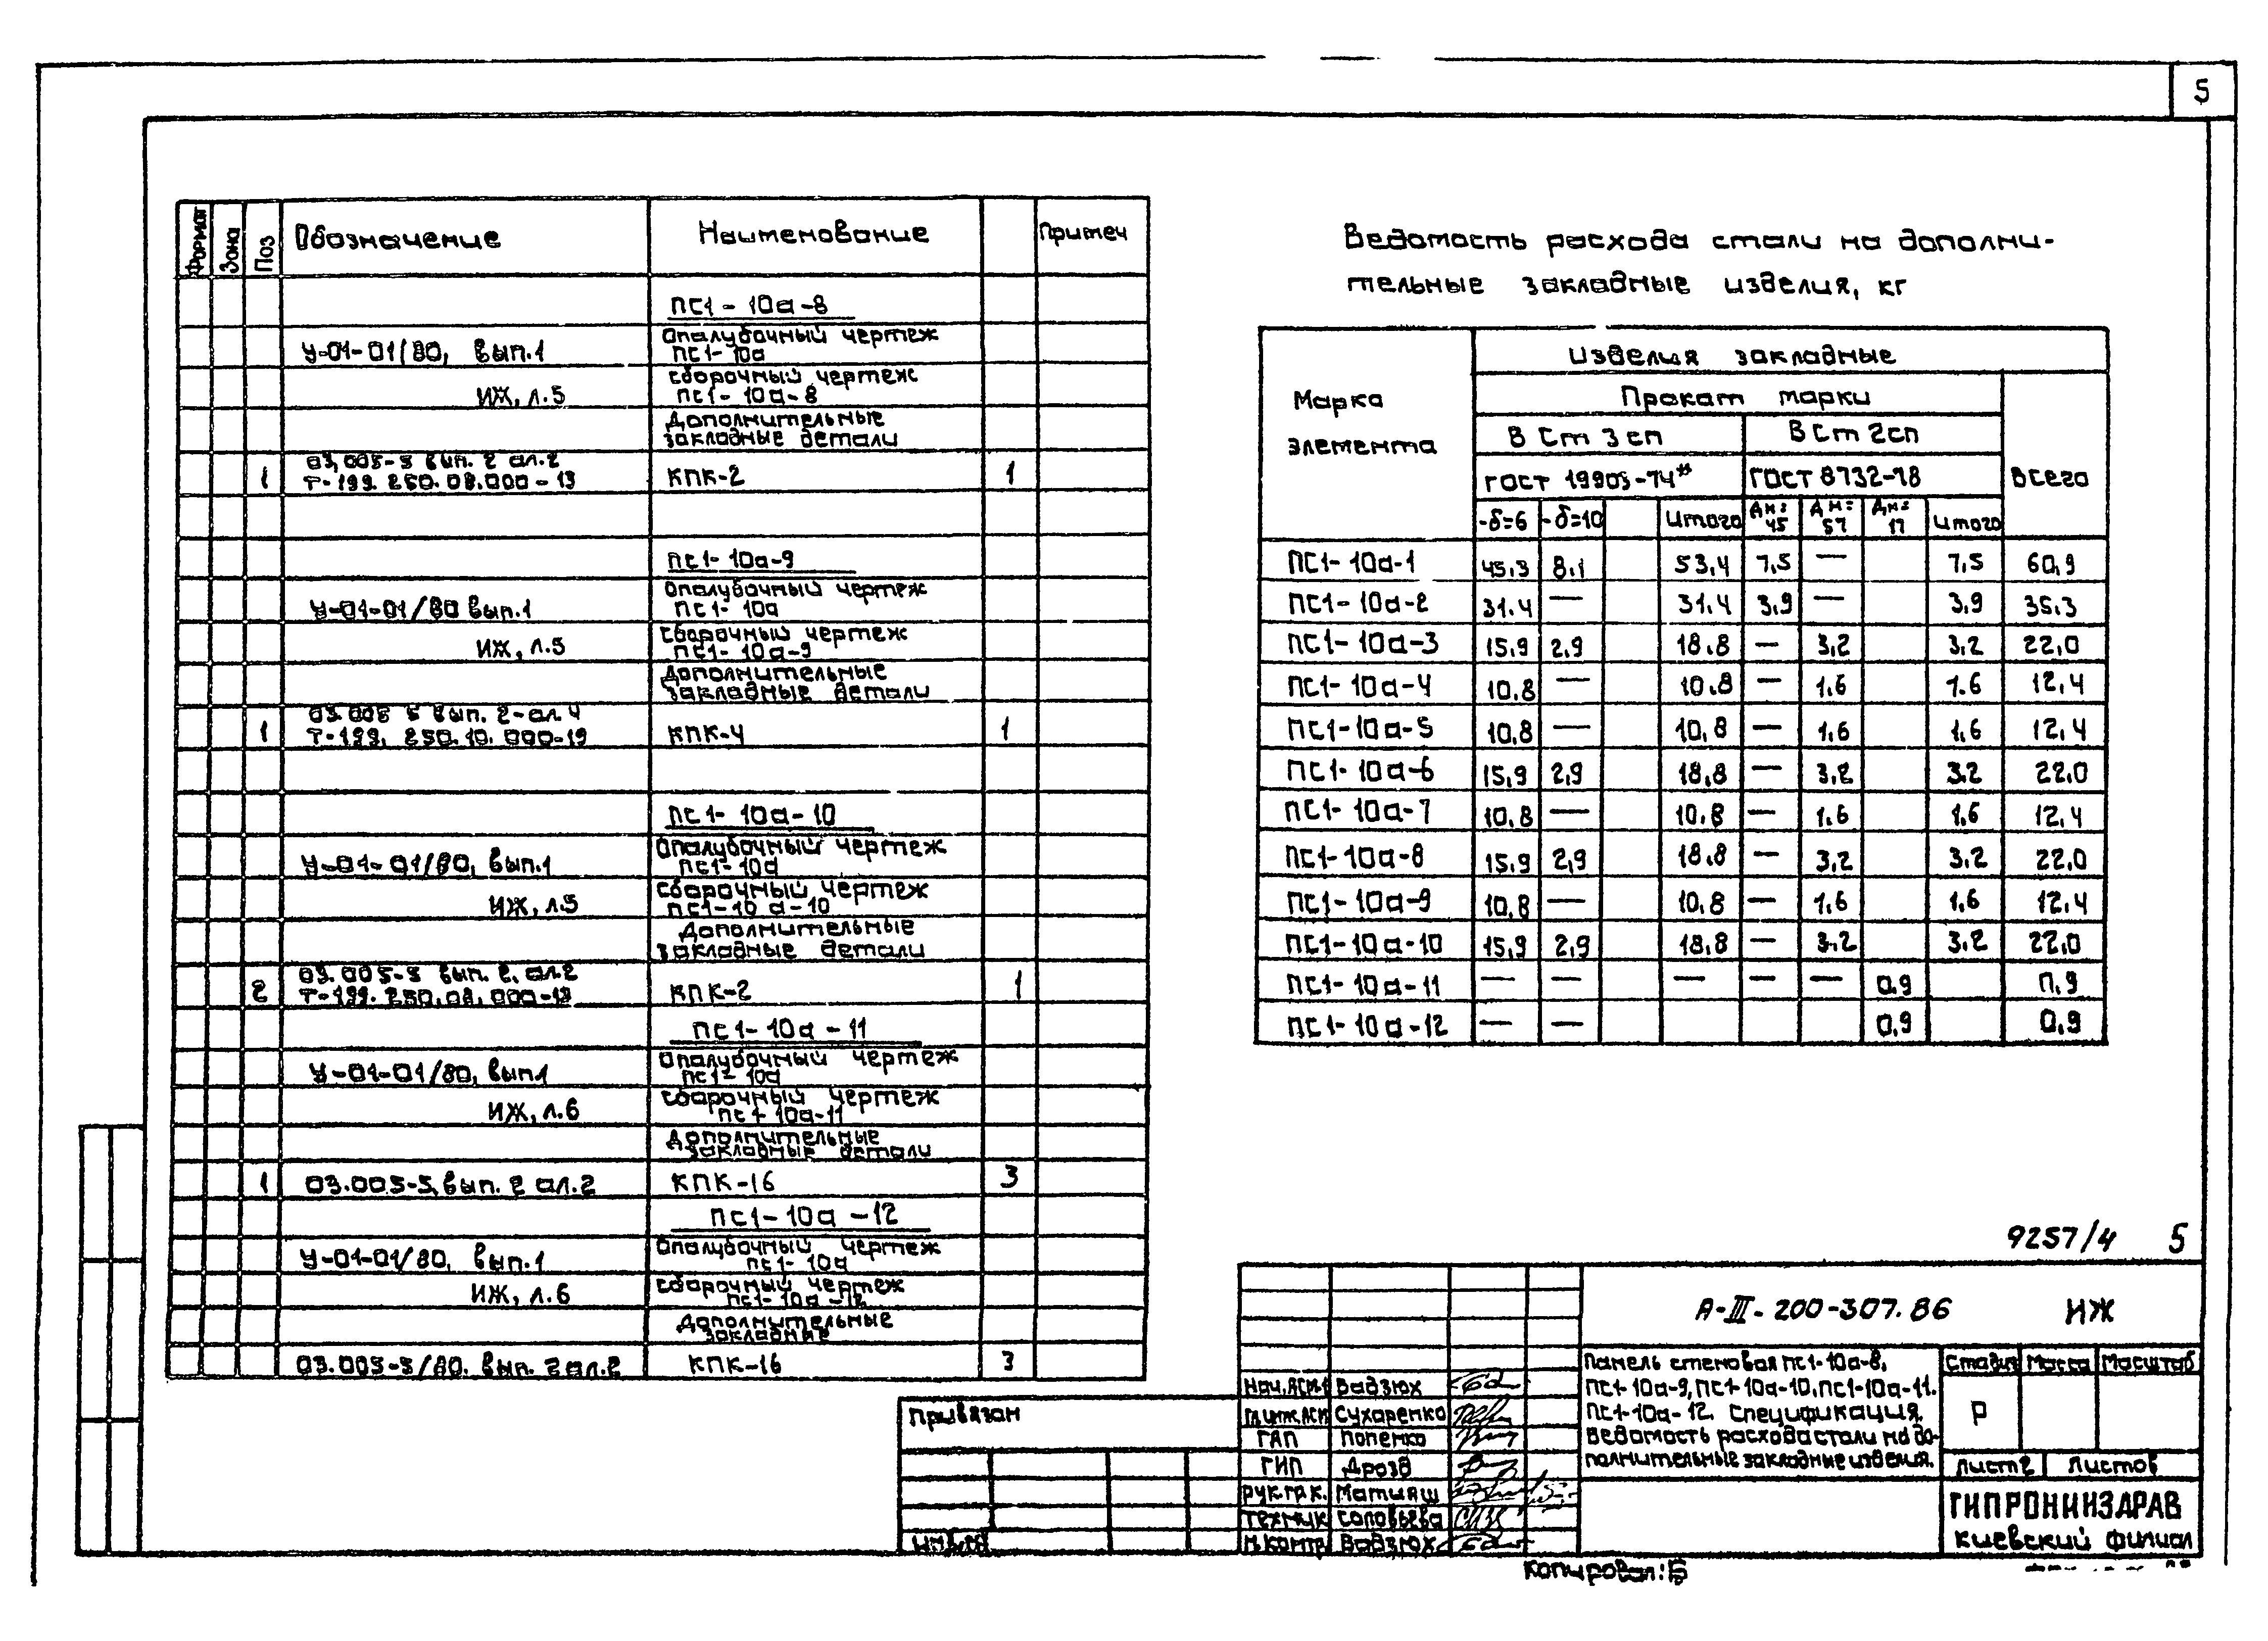 5
Формат Зона Поз Обозначение Наименование Примеч
ПС1-10а-8
У-01-01/80, вып.1 Опалубочный чертеж
ПС1-10а
ИЖ, л.5 Сборочный чертеж
ПС1-10а-8
Дополнительные
закладные детали
03.005-5 вып. 2 ал.2
1 Т-199. 250.08.000-13 КПК-2 1
ПС1-10а-9
У-01-01/80 вып.1 Опалубочный чертеж
ПС1-10а
ИЖ, л.5 Сборочный чертеж
ПС1-10а-9
Дополнительные
закладные детали
03.005 5 вып. 2-ал.4
1 Т-199. 250.10.000-19 КПК-4 1
ПС1-10а-10
У-01-01/80, вып.1 Опалубочный чертеж
ПС1-10а
ИЖ, л.5 Сборочный чертеж
ПС1-10а-10
Дополнительные
закладные детали
03.005-5 вып. 2, ал.2
2 Т-199. 250.08.000-13 КПК-2 1
ПС1-10а-11
У-01-01/80, вып1 Опалубочный чертеж
ПС1-10а
ИЖ, л.6 Сборочный чертеж
ПС1-10а-11
Дополнительные
закладные детали
1 03.005-5, вып. 2 ал.2 КПК-16 3
ПС1-10а-12
У-01-01/80, вып.1 Опалубочный чертеж
ПС1-10а
ИЖ, л.6 Сборочный чертеж
ПС1-10а-12
Дополнительные
закладные
03.005-5/80. вып. 2 ал.2 КПК-16 3
Ведомость расхода стали на дополни-
тельные закладные изделия, кг
Марка элемента Изделия закладные
Прокат марки Всего
В Ст 3 сп В Ст 2сп
ГОСТ 19903-74* ГОСТ 8732-78
-δ=6 -δ=10 Итого Дн=45 Дн=57 Дн=17 Итого
ПС1-10а-1 45,3 8,1 53,4 7,5 — 7,5 60,9
ПС1-10а-2 31.4 — 31.4 3,9 — 3,9 35.3
ПС1-10а-3 15,9 2,9 18.8 — 3,2 3,2 22,0
ПС1-10а-4 10,8 — 10.8 — 1.6 1.6 12,4
ПС1-10а-5 10,8 — 10,8 — 1,6 1,6 12,4
ПС1-10а-6 15,9 2,9 18,8 — 3,2 3.2 22.0
ПС1-10а-7 10,8 — 10,8 — 1.6 1,6 12,4
ПС1-10а-8 15,9 2,9 18.8 — 3,2 3,2 22.0
ПС1-10а-9 10,8 — 10,8 — 1,6 1,6 12,4
ПС1-10а-10 15,9 2,9 18,8 — 3.2 3,2 22,0
ПС1-10а-11 — — — — — 0,9 0,9
ПС1-10а-12 — — 0,9 0,9
9257/4 5
А-III-200-307.86 ИЖ
Панель стеновая ПС1-10а-8,
ПС1-10а-9, ПС1-10а-10, ПС1-10а-11.
ПС1-10а-12. Спецификация.
Ведомость расхода стали на до-
полнительные закладные изделия.
Стадия Масса Масштаб
Р
Лист 2 Листов
ГИПРОНИИЗДРАВ
Киевский филиал
Нач.АСМ-1 Вадзюх
Гл.инж.АСМ Сухаренко
ГАП Попенко
ГИП Дрозд
Рук.гр.к. Матияш
Техник Соловьева
Н.контр. Вадзюх
Привязан
Инв.№
Копировал: Б